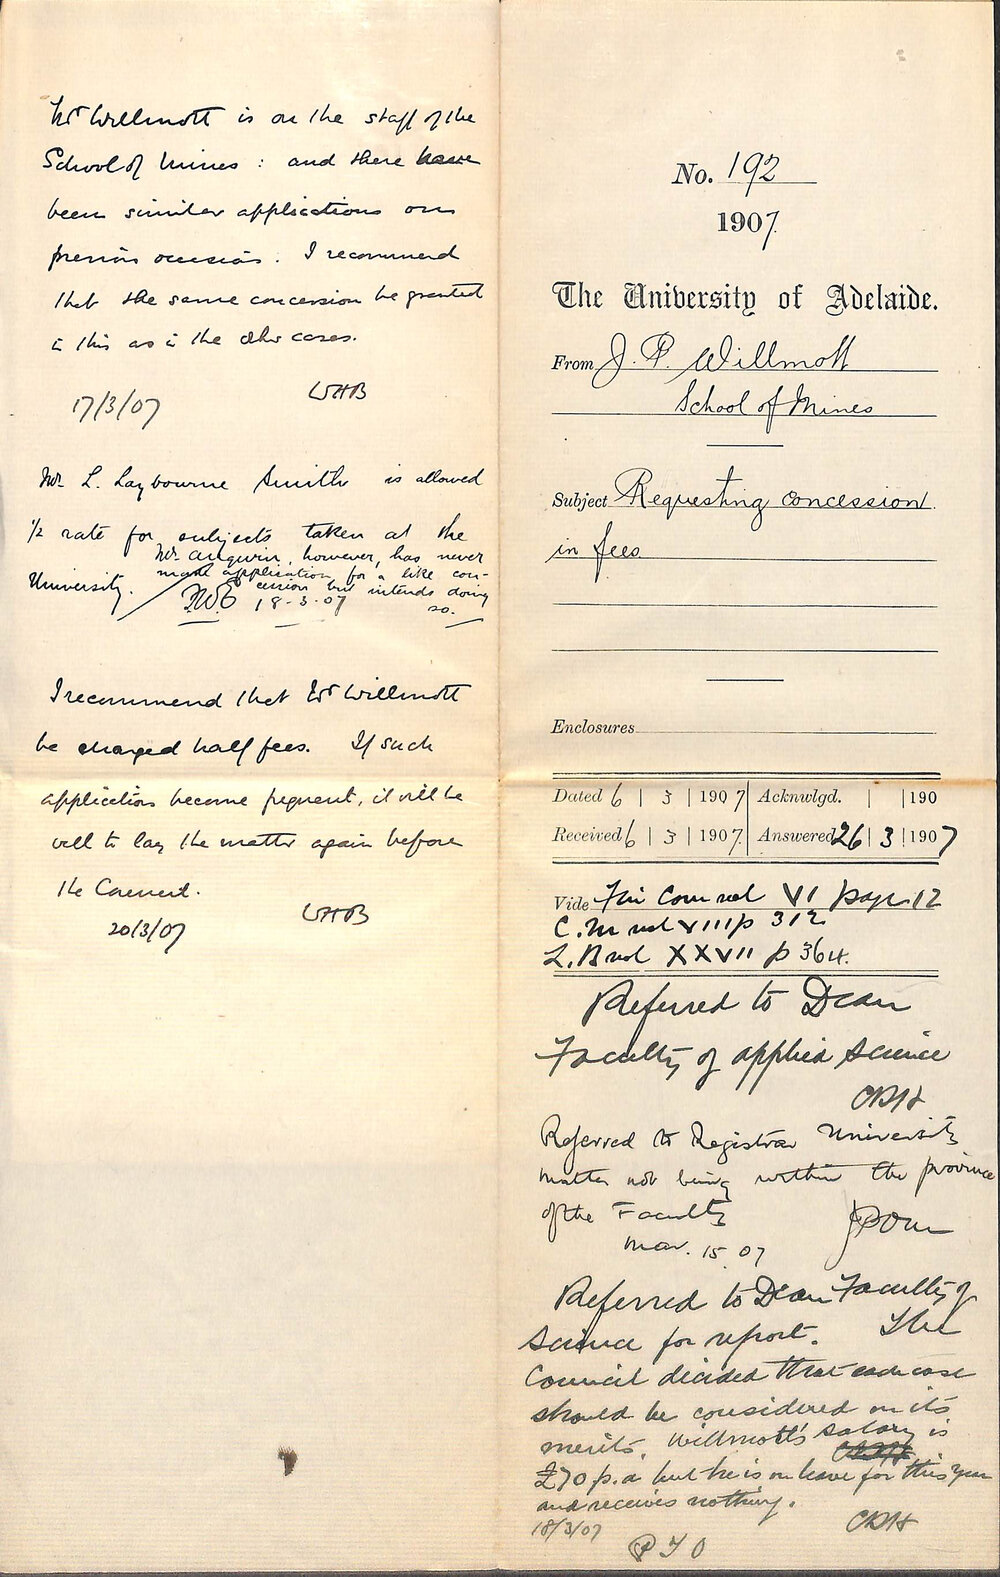 Mr Willmott is on the staff of the
School of Mines : and there have
been similar applications on
previous occasions. I recommend
that the same concession be granted
in this as in the other cases.
WHB
17/3/07
Mr. L. Laybourne Smith is allowed
1/2 rate for subjects taken at the
University.
Mr. Angwin, however, has never
made application for a like con-
cession but intends doing
so.
18-3-07
I recommend that Mr Willmott
be charged half fees. If such
applications become frequent, it will be
well to lay the matter again before
the Council.
WHB
20/3/07
No. 192
1907.
The University of Adelaide.
From J. P. Willmott
School of Mines
Subject Requesting concession
in fees
Enclosures
Dated 6 | 3 | 1907 Acknwlgd. | | 190
Received 6 | 3 | 1907. Answered 26 | 3 | 1907
Vide Fin Com vol VI page 12
C.M vol VIII p 312
L.B vol XXVII p 364.
Referred to Dean
Faculty of applied Science
CRH
Referred to Registrar University
matter not being within the province
of the Faculty
Mar. 15 07
Referred to Dean Faculty of
Science for report. The
Council decided that each case
should be considered on its
merits. Willmott's salary is
£70 p.a but he is on leave for this year
and receives nothing.
18/3/07 CRH
P T O